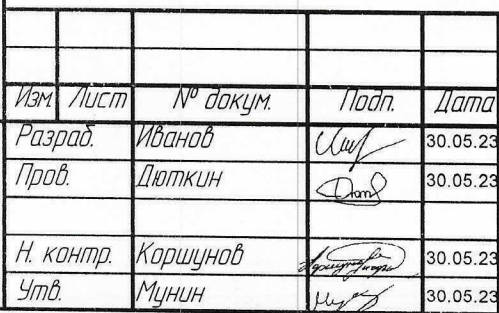 Изм Лист № докум. Подп. Дата
Разраб. Иванов 30.05.23
Пров. Дюткин 30.05.23
Н. контр. Коршунов 30.05.23
Утв. Мунин 30.05.23